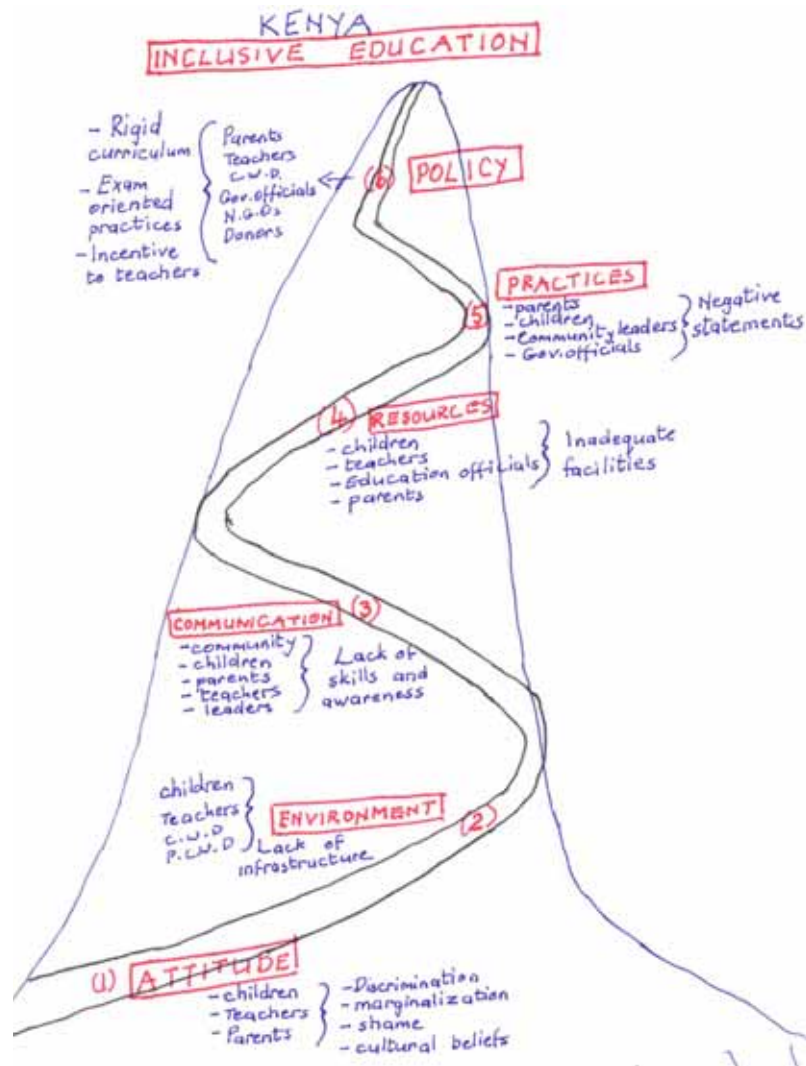 KENYA
INCLUSIVE EDUCATION
- Rigid
curriculum
- Exam
oriented
practices
- Incentive
to teachers
Parents
Teachers
C.W.D.
Gov.officials
N.G.Os
Donors
(6)
POLICY
PRACTICES
-parents
-children
-Community leaders
- Gov.officials
Negative
statements
(5)
(4)
RESOURCES
- children
- teachers
- Education officials
- parents
Inadequate
facilities
(3)
COMMUNICATION
-community
- children
- parents
- teachers
- leaders
Lack of
skills and
awareness
children
Teachers
C.W.D
P.C.W.D
ENVIRONMENT
(2)
Lack of
infrastructure
(1) ATTITUDE
- children
- Teachers
- Parents
-Discrimination
-marginalization
- shame
- cultural beliefs